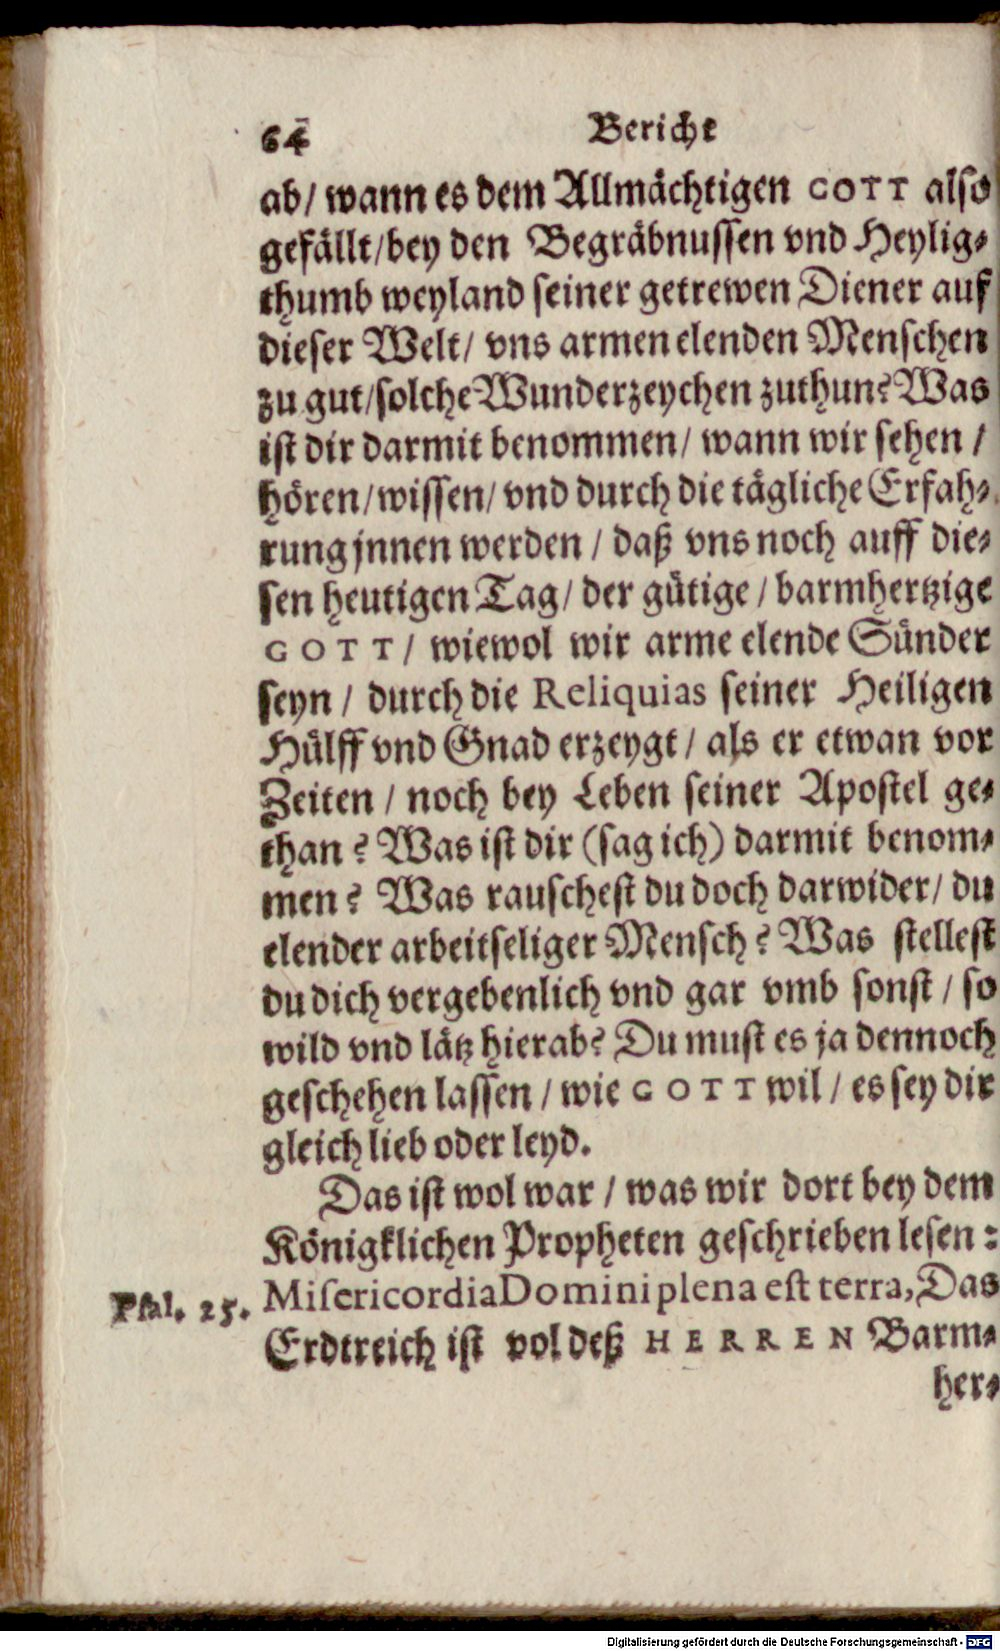 64 Bericht
ab/ wann es dem Allmächtigen GOTT also
gefällt/bey den Begräbnussen vnd Heylig-
thumb weyland seiner getrewen Diener auf
dieser Welt/ vns armen elenden Menschen
zu gut/solche Wunderzeychen zuthun? Was
ist dir darmit benommen/ wann wir sehen /
hören/wissen/ vnd durch die tägliche Erfah-
rung jnnen werden / daß vns noch auff die-
sen heutigen Tag/ der gütige / barmhertzige
GOTT / wiewol wir arme elende Sünder
seyn / durch die Reliquias seiner Heiligen
Hülff vnd Gnad erzeygt / als er etwan vor
Zeiten / noch bey Leben seiner Apostel ge-
than? Was ist dir (sag ich) darmit benom-
men? Was rauschest du doch darwider/ du
elender arbeitseliger Mensch? Was stellest
du dich vergebenlich vnd gar vmb sonst / so
wild vnd lätz hierab? Du must es ja dennoch
geschehen lassen / wie GOTT wil / es sey dir
gleich lieb oder leyd.
Das ist wol war / was wir dort bey dem
Königklichen Propheten geschrieben lesen:
Psal. 25. Misericordia Domini plena est terra, Das
Erdtreich ist vol deß HERREN Barm-
her-
Digitalisierung gefördert durch die Deutsche Forschungsgemeinschaft - DFG